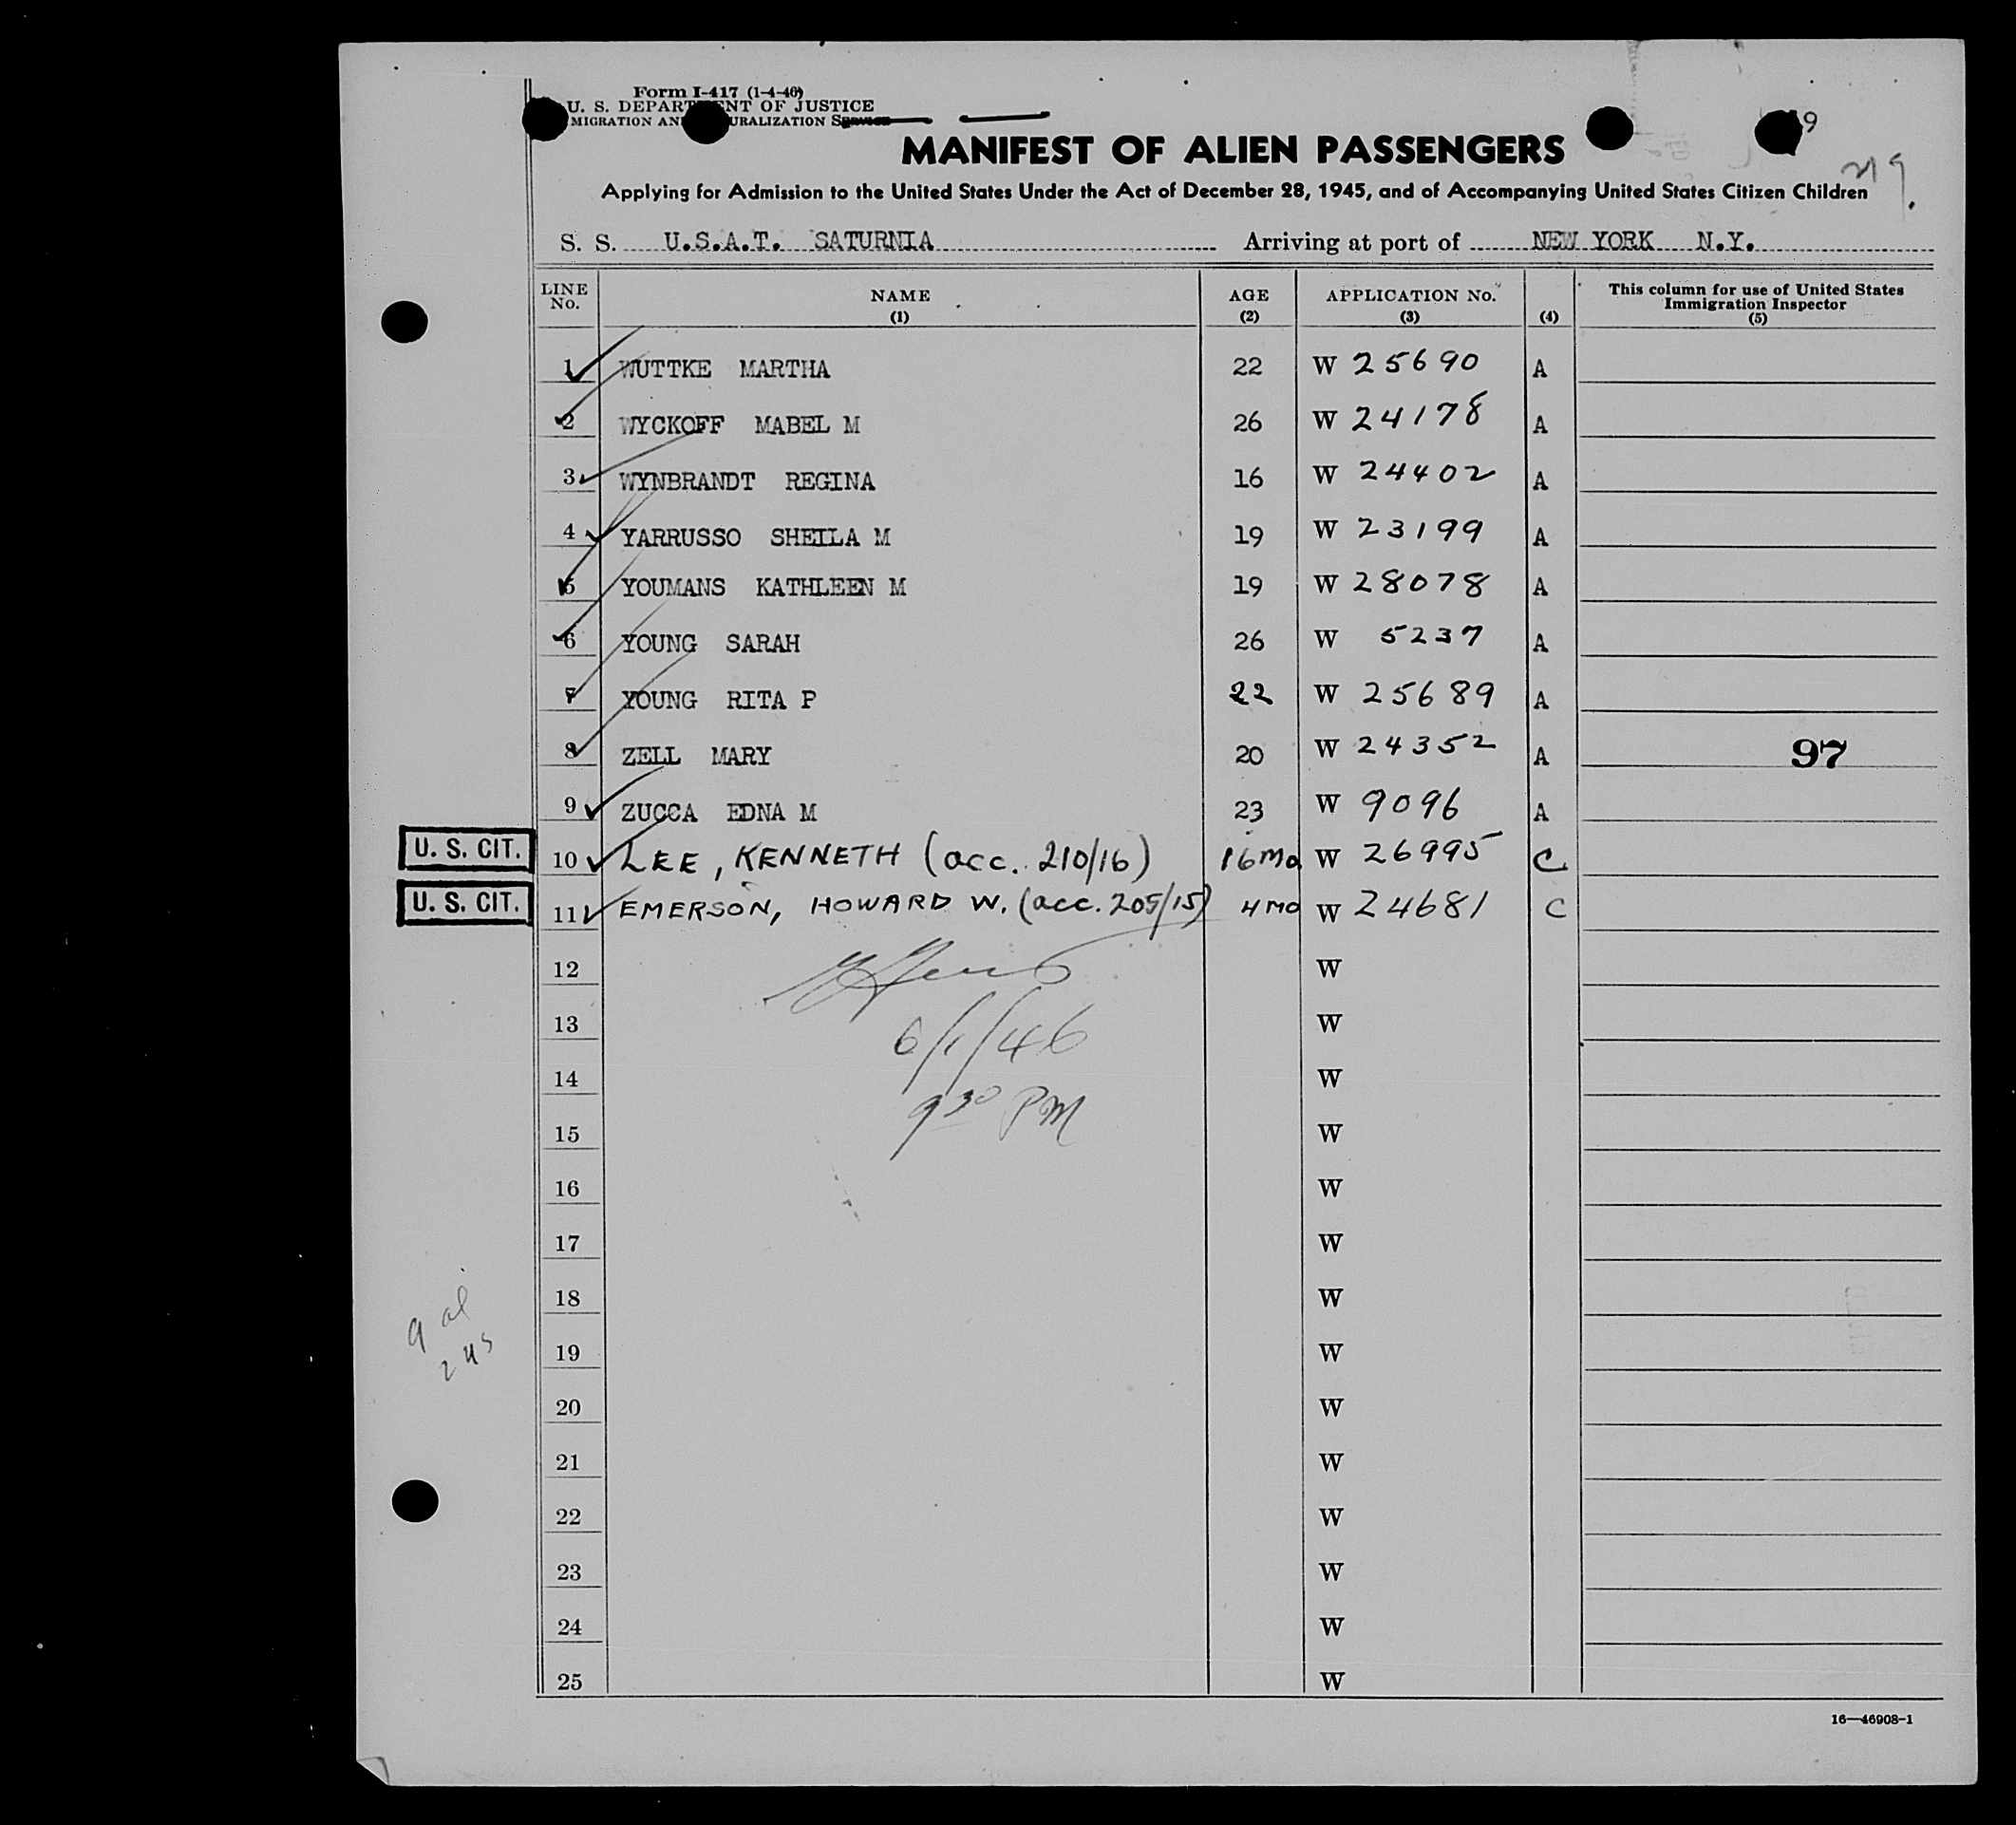 Form I-417 (1-4-46)
U. S. DEPARTMENT OF JUSTICE
MIGRATION AND NATURALIZATION SERVICE
MANIFEST OF ALIEN PASSENGERS
9
219
Applying for Admission to the United States Under the Act of December 28, 1945, and of Accompanying United States Citizen Children
S. S. U.S.A.T. SATURNIA Arriving at port of NEW YORK N.Y.
LINE No. NAME (1) AGE (2) APPLICATION No. (3) (4) This column for use of United States Immigration Inspector (5)
1 WUTTKE MARTHA 22 W 25690 A
2 WYCKOFF MABEL M 26 W 24178 A
3 WYNBRANDT REGINA 16 W 24402 A
4 YARRUSSO SHEILA M 19 W 23199 A
5 YOUMANS KATHLEEN M 19 W 28078 A
6 YOUNG SARAH 26 W 5237 A
7 YOUNG RITA P 22 W 25689 A
8 ZELL MARY 20 W 24352 A 97
9 ZUCCA EDNA M 23 W 9096 A
U. S. CIT. 10 LEE, KENNETH (acc. 210/16) 16mo W 26995 C
U. S. CIT. 11 EMERSON, HOWARD W. (acc. 205/15) 4 MO W 24681 C
12 W
13 6/1/46 W
14 W
15 9 30 PM W
16 W
17 W
18 W
9 al
19 W
2 us
20 W
21 W
22 W
23 W
24 W
25 W
16—46908-1